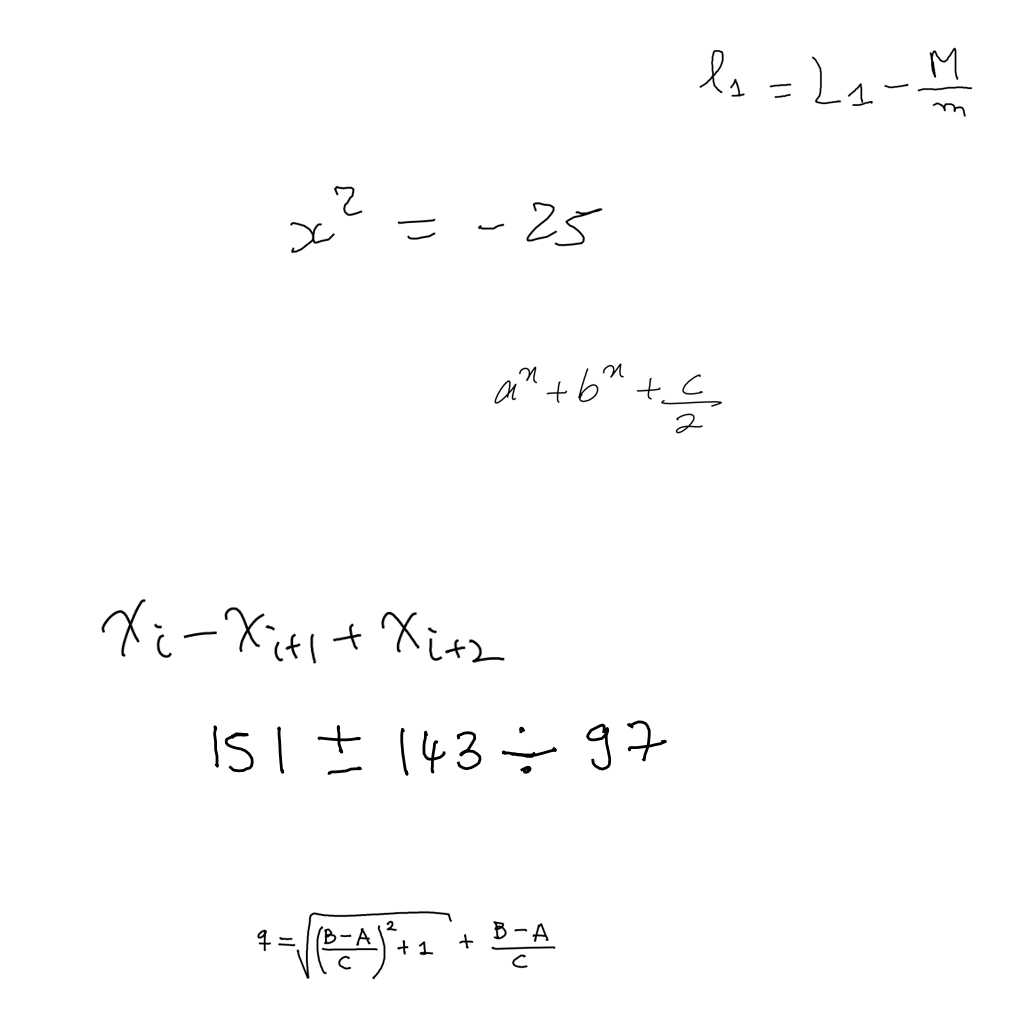 l₁ = L₁ - M/m
x² = -25
aⁿ + bⁿ + c/2
xᵢ - xᵢ₊₁ + xᵢ₊₂
151 ± 143 ÷ 97
q = √(((B-A)/C)² + 1) + (B-A)/C